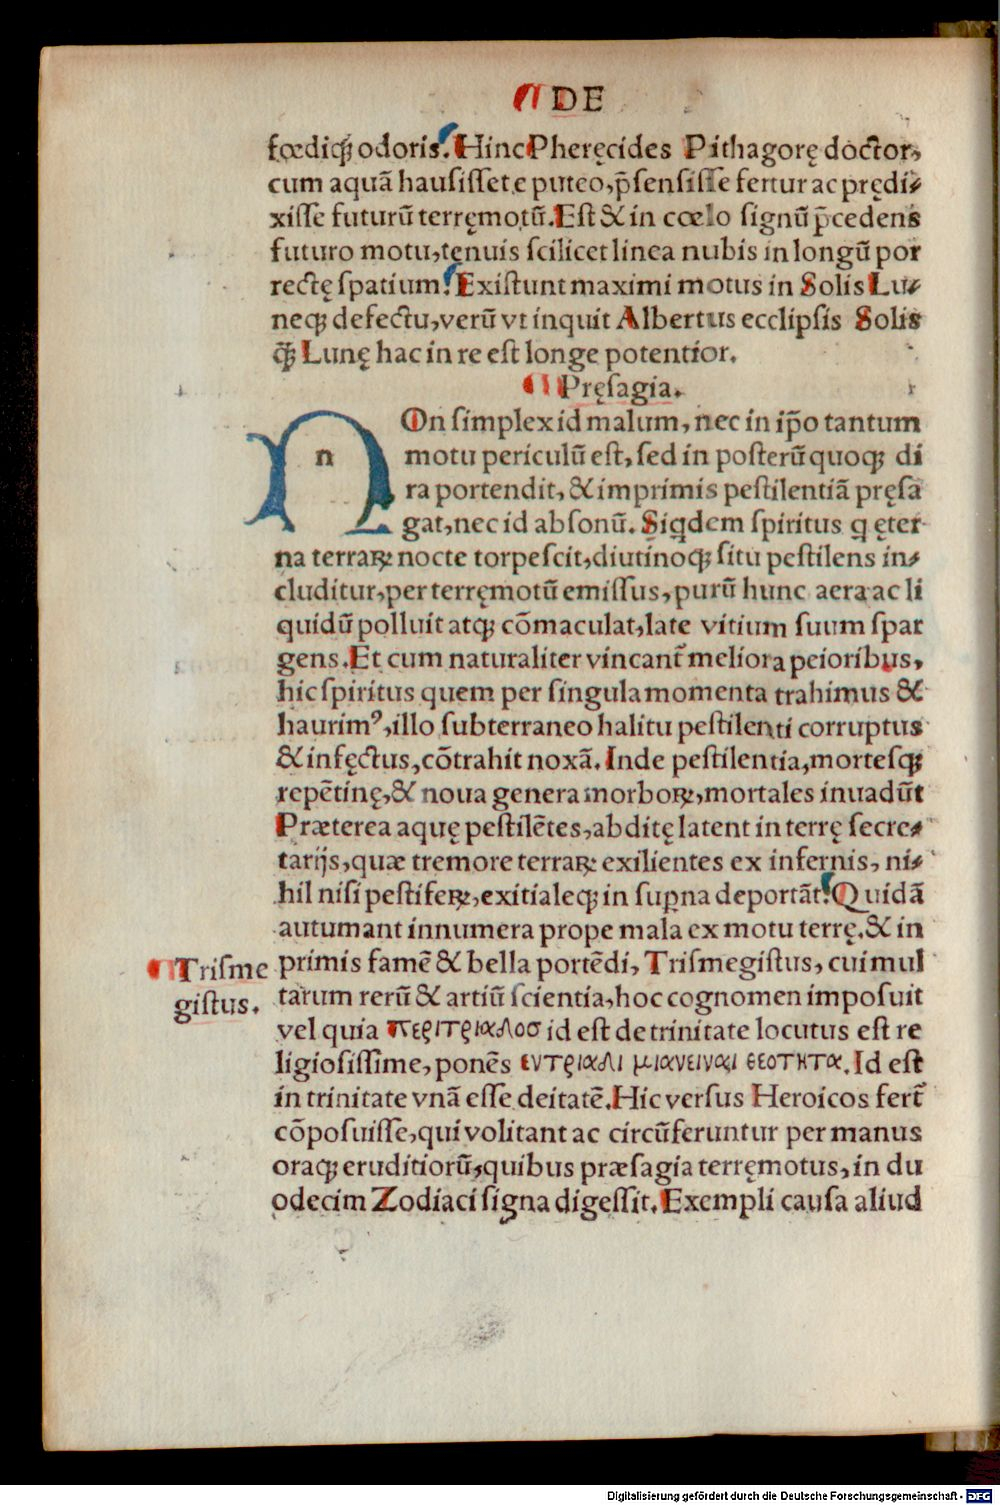 ¶ DE
fœdiq́; odoris. Hinc Pheręcides Pithagorę doctor,
cum aquã hausisset e puteo, p̄sensisse fertur ac prędi-
xisse futurũ terręmotũ. Est & in cœlo signũ p̄cedens
futuro motu, tenuis scilicet linea nubis in longũ por
rectę spatium. Existunt maximi motus in Solis Lu-
neq; defectu, verũ vt inquit Albertus ecclipsis Solis
q̃; Lunę hac in re est longe potentior.
¶ Pręsagia.
n
NOn simplex id malum, nec in ip̃o tantum
motu periculũ est, sed in posterũ quoq; di
ra portendit, & imprimis pestilentiã pręsa
gat, nec id absonũ. Siqdem spiritus q ęter
na terraꝝ nocte torpescit, diutinoq; situ pestilens in-
cluditur, per terręmotũ emissus, purũ hunc aera ac li
quidũ polluit atq; cõmaculat, late vitium suum spar
gens. Et cum naturaliter vincant̃ meliora peioribus,
hic spiritus quem per singula momenta trahimus &
haurimꝰ, illo subterraneo halitu pestilenti corruptus
& infęctus, cõtrahit noxã. Inde pestilentia, mortesq;
repẽtinę, & noua genera morboꝝ, mortales inuadũt
Præterea aquę pestilẽtes, abditę latent in terrę secre-
tarijs, quæ tremore terraꝝ exilientes ex infernis, ni-
hil nisi pestifeꝝ, exitialeq; in suꝑna deportãt. Quidã
autumant innumera prope mala ex motu terrę, & in
primis famẽ & bella portẽdi, Trismegistus, cui mul
tarum rerũ & artiũ scientia, hoc cognomen imposuit
vel quia περιτριαδοσ id est de trinitate locutus est re
ligiosissime, ponẽs εντριαδι μιανειναι θεοτητα. Id est
in trinitate vnã esse deitatẽ. Hic versus Heroicos fert̃
cõposuisse, qui volitant ac circũferuntur per manus
oraq; eruditiorũ, quibus præsagia terręmotus, in du
odecim Zodiaci signa digessit. Exempli causa aliud
¶ Trisme
gistus.
Digitalisierung gefördert durch die Deutsche Forschungsgemeinschaft - DFG